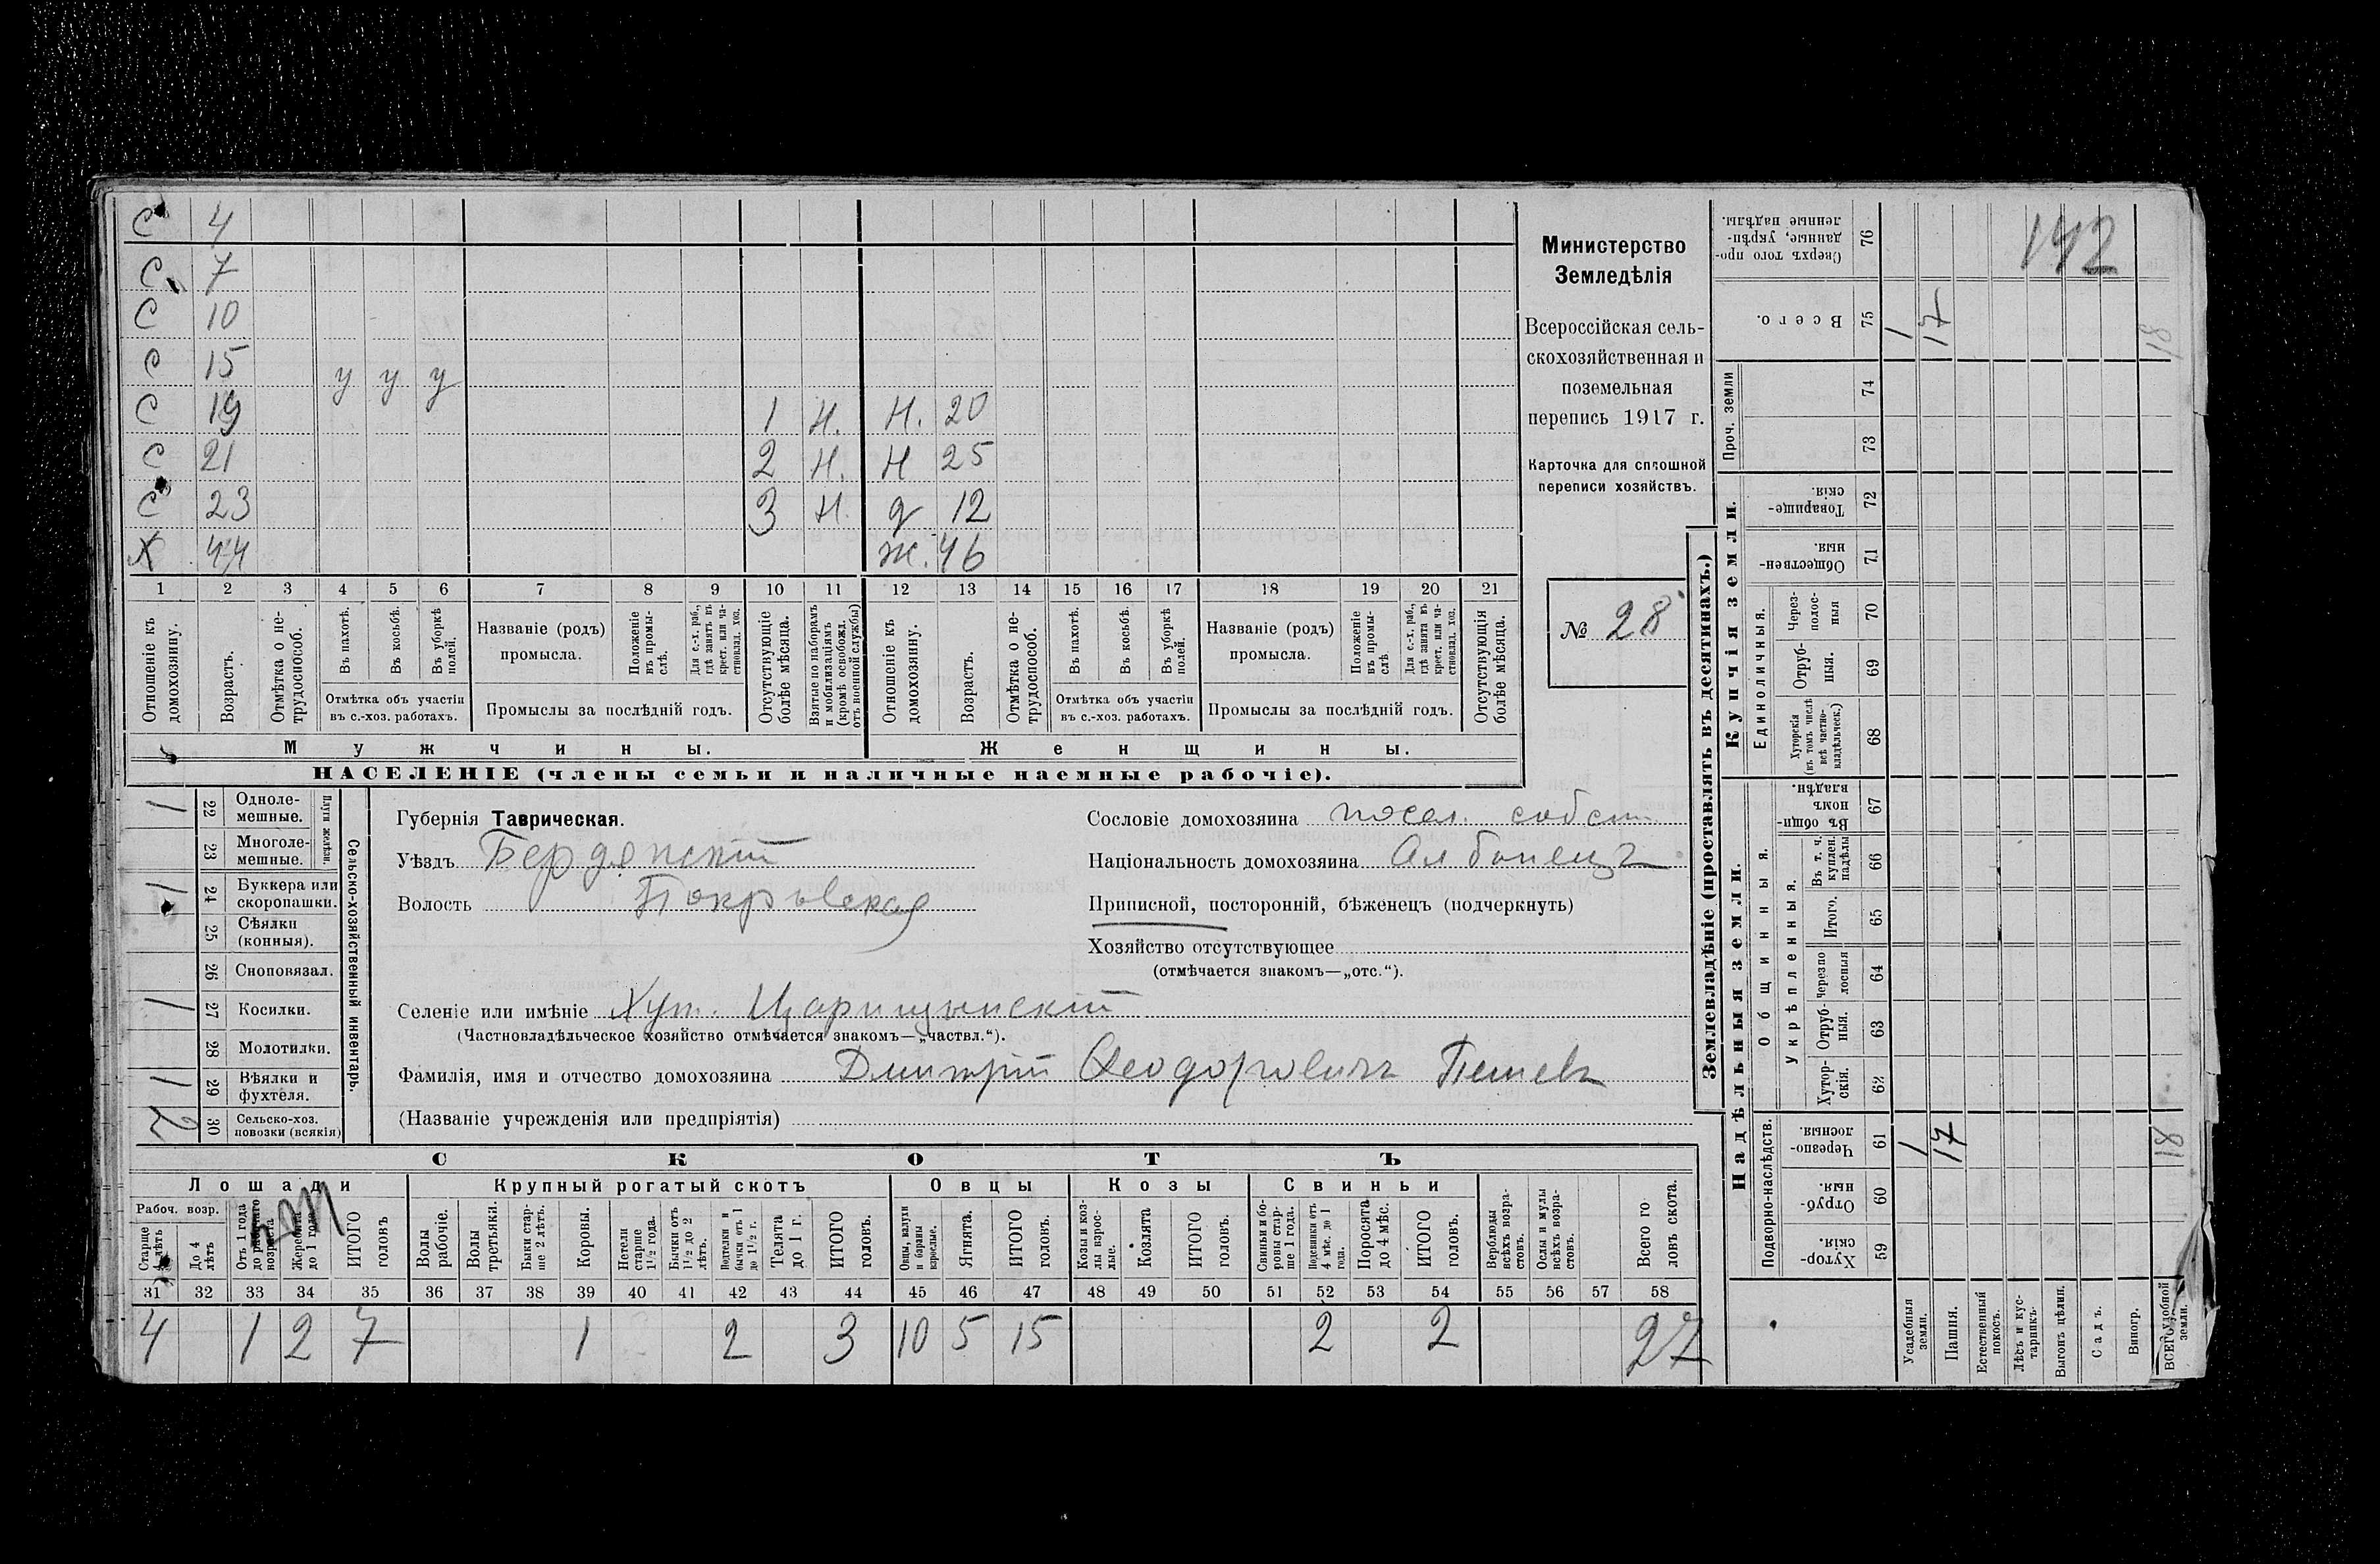 С 4
С 7
С 10
С 15 у у у
С 19 1 Н. Н. 20
С 21 2 Н. Н 25
С 23 3 Н. д 12
Х 44 Ж. 46
1 2 3 4 5 6 7 8 9 10 11 12 13 14 15 16 17 18 19 20 21
Отношеніе къ домохозяину.
Возрастъ.
Отмѣтка о нетрудоспособ.
Въ пахотѣ.
Въ косьбѣ.
Въ уборкѣ полей.
Отмѣтка объ участіи въ с.-хоз. работахъ.
Названіе (родъ) промысла.
Положеніе въ промыслѣ.
Для с.-х. раб., гдѣ занятъ въ крест. или частновлад. хоз.
Промыслы за послѣдній годъ.
Отсутствующіе болѣе мѣсяца.
Взятые по наборамъ и мобилизаціямъ (кромѣ освобожд. отъ военной службы)
Отношеніе къ домохозяину.
Возрастъ.
Отмѣтка о нетрудоспособ.
Въ пахотѣ.
Въ косьбѣ.
Въ уборкѣ полей.
Отмѣтка объ участіи въ с.-хоз. работахъ.
Названіе (родъ) промысла.
Положеніе въ промыслѣ
Для с.-х. раб., гдѣ занята въ крест. или частновлад. хоз.
Промыслы за послѣдній годъ.
Отсутствующія болѣе мѣсяца.
Мужчины. Женщины.
НАСЕЛЕНІЕ (члены семьи и наличные наемные рабочіе).
Министерство
Земледѣлія
Всероссійская сель-
скохозяйственная и
поземельная
перепись 1917 г.
Карточка для сплошной
переписи хозяйствъ.
№ 28
Сельско-хозяйственный инвентарь.
Плуги желѣзн.
1 22 Одноле-мешные.
23 Многоле-мешные.
1 24 Буккера или скоропашки.
25 Сѣялки (конныя).
26 Сноповязал.
1 27 Косилки.
28 Молотилки.
1 29 Вѣялки и фухтеля.
2 30 Сельско-хоз. повозки (всякія)
Губернія Таврическая.
Уѣздъ Бердянскій
Волость Покровская
Сословіе домохозяина посел. собств.
Національность домохозяина Албанецъ
Приписной, посторонній, бѣженецъ (подчеркнуть)
Хозяйство отсутствующее
(отмѣчается знакомъ—„отс.“).
Селеніе или имѣніе Хут. Царицынскій
(Частновладѣльческое хозяйство отмѣчается знакомъ—„частвл.“).
Фамилія, имя и отчество домохозяина Дмитрій Ѳеодоровичъ Пешевъ
(Названіе учрежденія или предпріятія)
СКОТЪ
Лошади Крупный рогатый скотъ Овцы Козы Свиньи
Рабоч. возр.
Старше 4 лѣтъ
До 4 лѣтъ
Отъ 1 года до рабочаго возраста
Жеребята до 1 года
ИТОГО головъ
Волы рабочіе.
Волы третьяки.
Быки старше 2 лѣтъ.
Коровы.
Нетели старше 1½ года.
Бычки отъ 1½ до 2 лѣтъ.
Подтелки и бычки отъ 1 до 1½ г.
Телята до 1 г.
ИТОГО головъ.
Овцы, валухи и бараны взрослые.
Ягнята.
ИТОГО головъ.
Козы и козлы взрослые.
Козлята
ИТОГО головъ.
Свиньи и боровы старше 1 года.
Подсвинки отъ 4 мѣс. до 1 года.
Поросята до 4 мѣс.
ИТОГО головъ.
Верблюды всѣхъ возрастовъ.
Ослы и мулы всѣхъ возрастовъ.
Всего головъ скота.
31 32 33 34 35 36 37 38 39 40 41 42 43 44 45 46 47 48 49 50 51 52 53 54 55 56 57 58
4 1 2 7 1 2 3 10 5 15 2 2 27
142
Землевладѣніе (проставлять въ десятинахъ.)
Сверхъ того проданные, укрѣпленные надѣлы. 76
Всего. 75 1 17 18
Проч. земли 74 73
Купчія земли.
Товарищескія. 72
Общественныя. 71
Единоличныя.
Черезполосныя 70
Отрубныя. 69
Хуторскія (въ томъ числѣ всѣ частновладѣльческ.) 68
Надѣльныя земли.
Общинныя.
Въ общинномъ владѣн. 67
Укрѣпленныя.
Въ т. ч. куплен. надѣлы 66
Итого. 65
Черезполосныя 64
Отрубныя. 63
Хуторскія. 62
Подворно-наслѣдств.
Черезполосныя. 61 1 17 18
Отрубныя. 60
Хуторскія. 59
Усадебныя земли.
Пашня.
Естественный покосъ.
Лѣсъ и кустарникъ.
Выгонъ цѣлин.
Садъ.
Виногр.
ВСЕГО удобной земли.